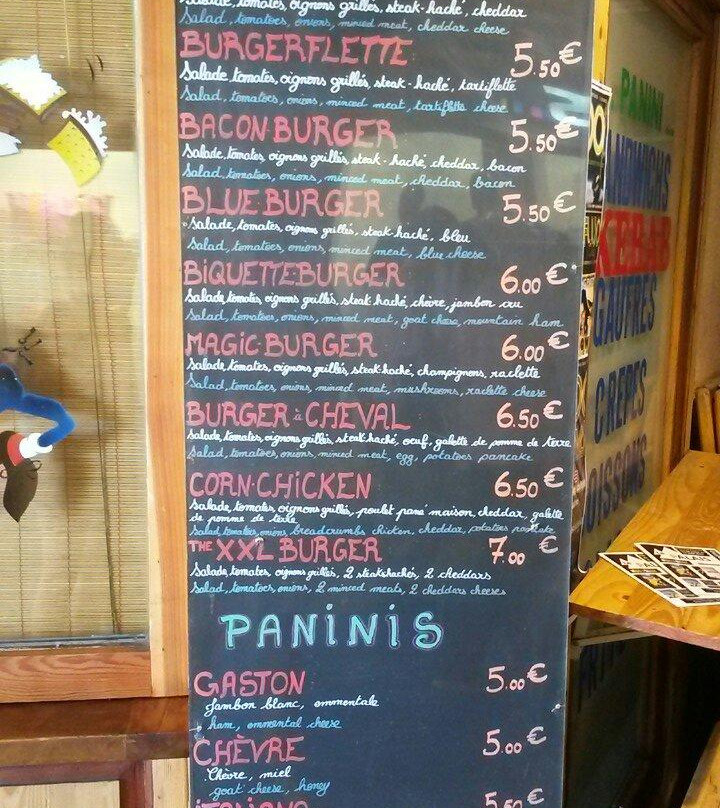 Salade, tomates, oignons grillés, steak-haché, cheddar
Salad, tomatoes, onions, minced meat, cheddar cheese
BURGERFLETTE 5.50€
Salade, tomates, oignons grillés, steak-haché, tartiflette
Salad, tomatoes, onions, minced meat, tartiflette cheese
BACON·BURGER 5.50€
Salade, tomates, oignons grillés, steak-haché, cheddar, bacon
Salad, tomatoes, onions, minced meat, cheddar, bacon
BLUE·BURGER 5.50€
Salade, tomates, oignons grillés, steak haché, bleu
Salad, tomatoes, onions, minced meat, blue cheese
BIQUETTEBURGER 6.00€
Salade, tomates, oignons grillés, steak haché, chèvre, jambon cru
Salad, tomatoes, onions, minced meat, goat cheese, mountain ham
MAGIC·BURGER 6.00€
Salade, tomates, oignons grillés, steak haché, champignons, raclette
Salad, tomatoes, onions, minced meat, mushrooms, raclette cheese
BURGER à CHEVAL 6.50€
Salade, tomates, oignons grillés, steak haché, oeuf, galette de pomme de terre
Salad, tomatoes, onions, minced meat, egg, potatoes pancake
CORN·CHICKEN 6.50€
Salade, tomates, oignons grillés, poulet pané maison, cheddar, galette
de pomme de terre
Salad, tomatoes, onions, breadcrumbs chicken, cheddar, potatoes pancake
THE XXL BURGER 7.00€
Salade, tomates, oignons grillés, 2 steaks hachés, 2 cheddars
Salad, tomatoes, onions, 2 minced meats, 2 cheddars cheeses
PANINIS
GASTON 5.00€
Jambon blanc, emmentale
ham, emmental cheese
CHÈVRE 5.00€
Chèvre, miel
goat cheese, honey
5.50€
PANINI
KEBAB
GAUFRES
CREPES